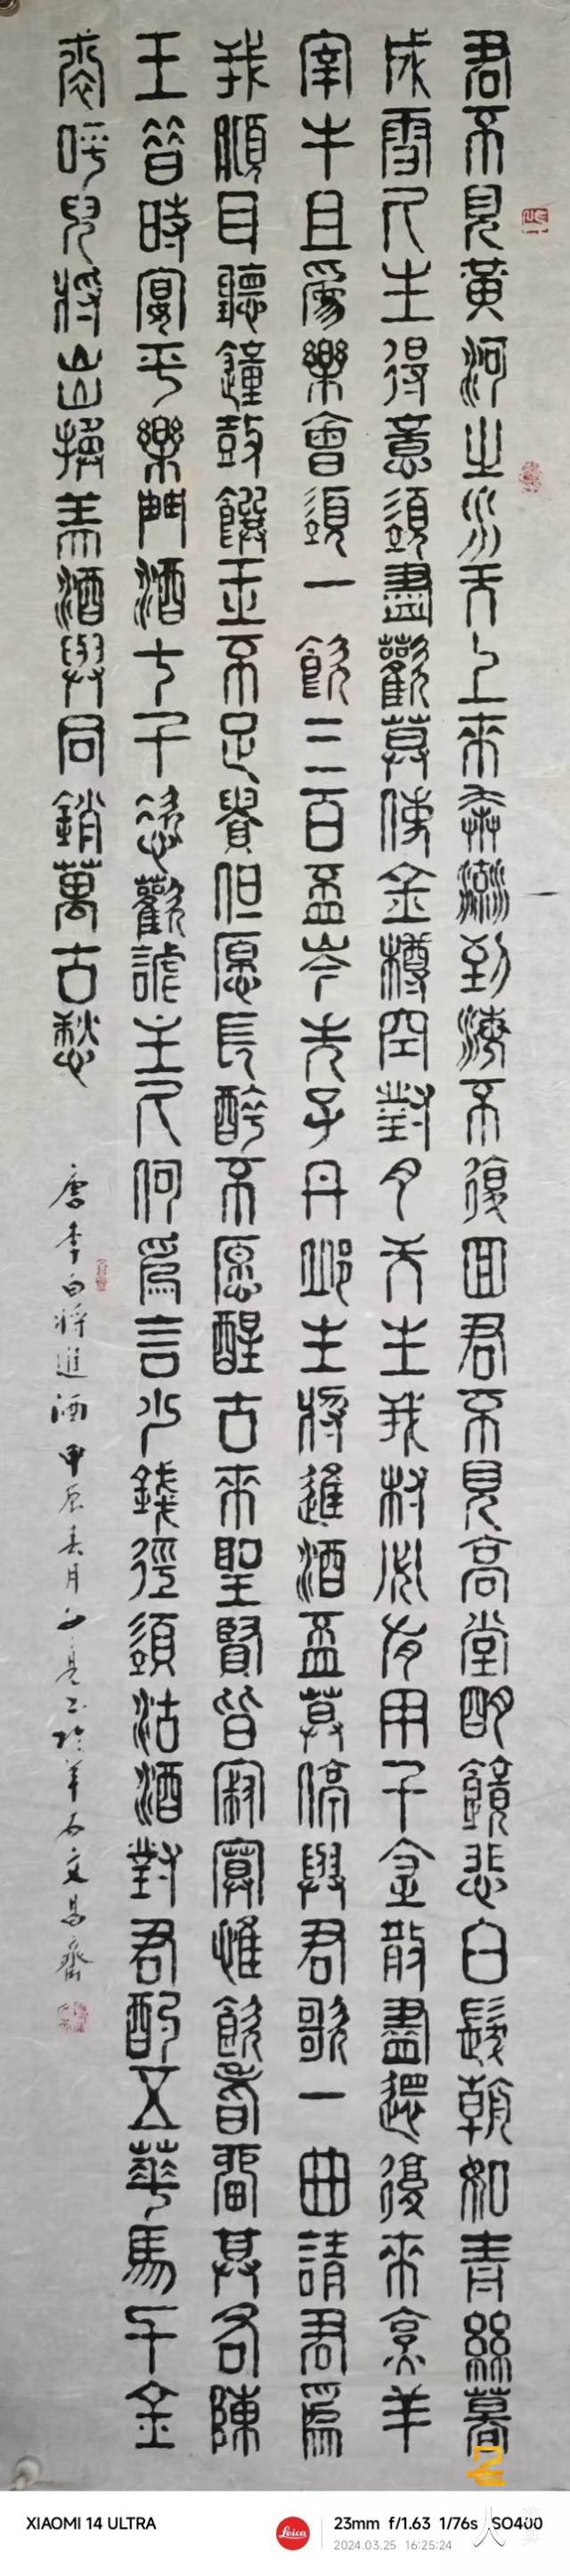 君不見黃河之水天上來奔流到海不復回君不見高堂明鏡悲白髮朝如青絲暮
成雪人生得意須盡歡莫使金樽空對月天生我材必有用千金散盡還復來烹羊
宰牛且爲樂會須一飲三百盃岑夫子丹邱生將進酒盃莫停與君歌一曲請君爲
我傾耳聽鐘鼓饌玉不足貴但愿長醉不愿醒古來聖賢皆寂寞惟飲者留其名陳
王昔時宴平樂斗酒十千恣歡謔主人何爲言少錢徑須沽酒對君酌五華馬千金
裘呼兒將出換美酒與同銷萬古愁
唐李白將進酒甲辰春月亮書於羊石文昌齋
XIAOMI 14 ULTRA
Leica
23mm f/1.63 1/76s ISO400
2024.03.25 16:25:24